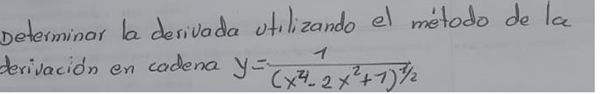 Determinar la derivada utilizando el método de la
derivación en cadena y = 1/(x⁴ - 2x² + 1)^1/2